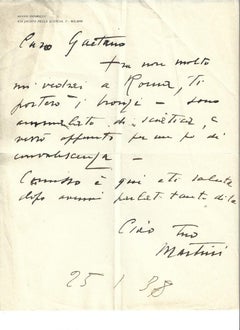 Caro Gaetano
fra non molto
mi vedrai a Roma, ti
porterò i bronzi — sono
ammalato di sciatica, e
verrò appunto per un po' di
convalescenza —
è qui e ti saluta
dopo avermi parlato tanto di te
Ciao Tuo
Martini
25 1 38